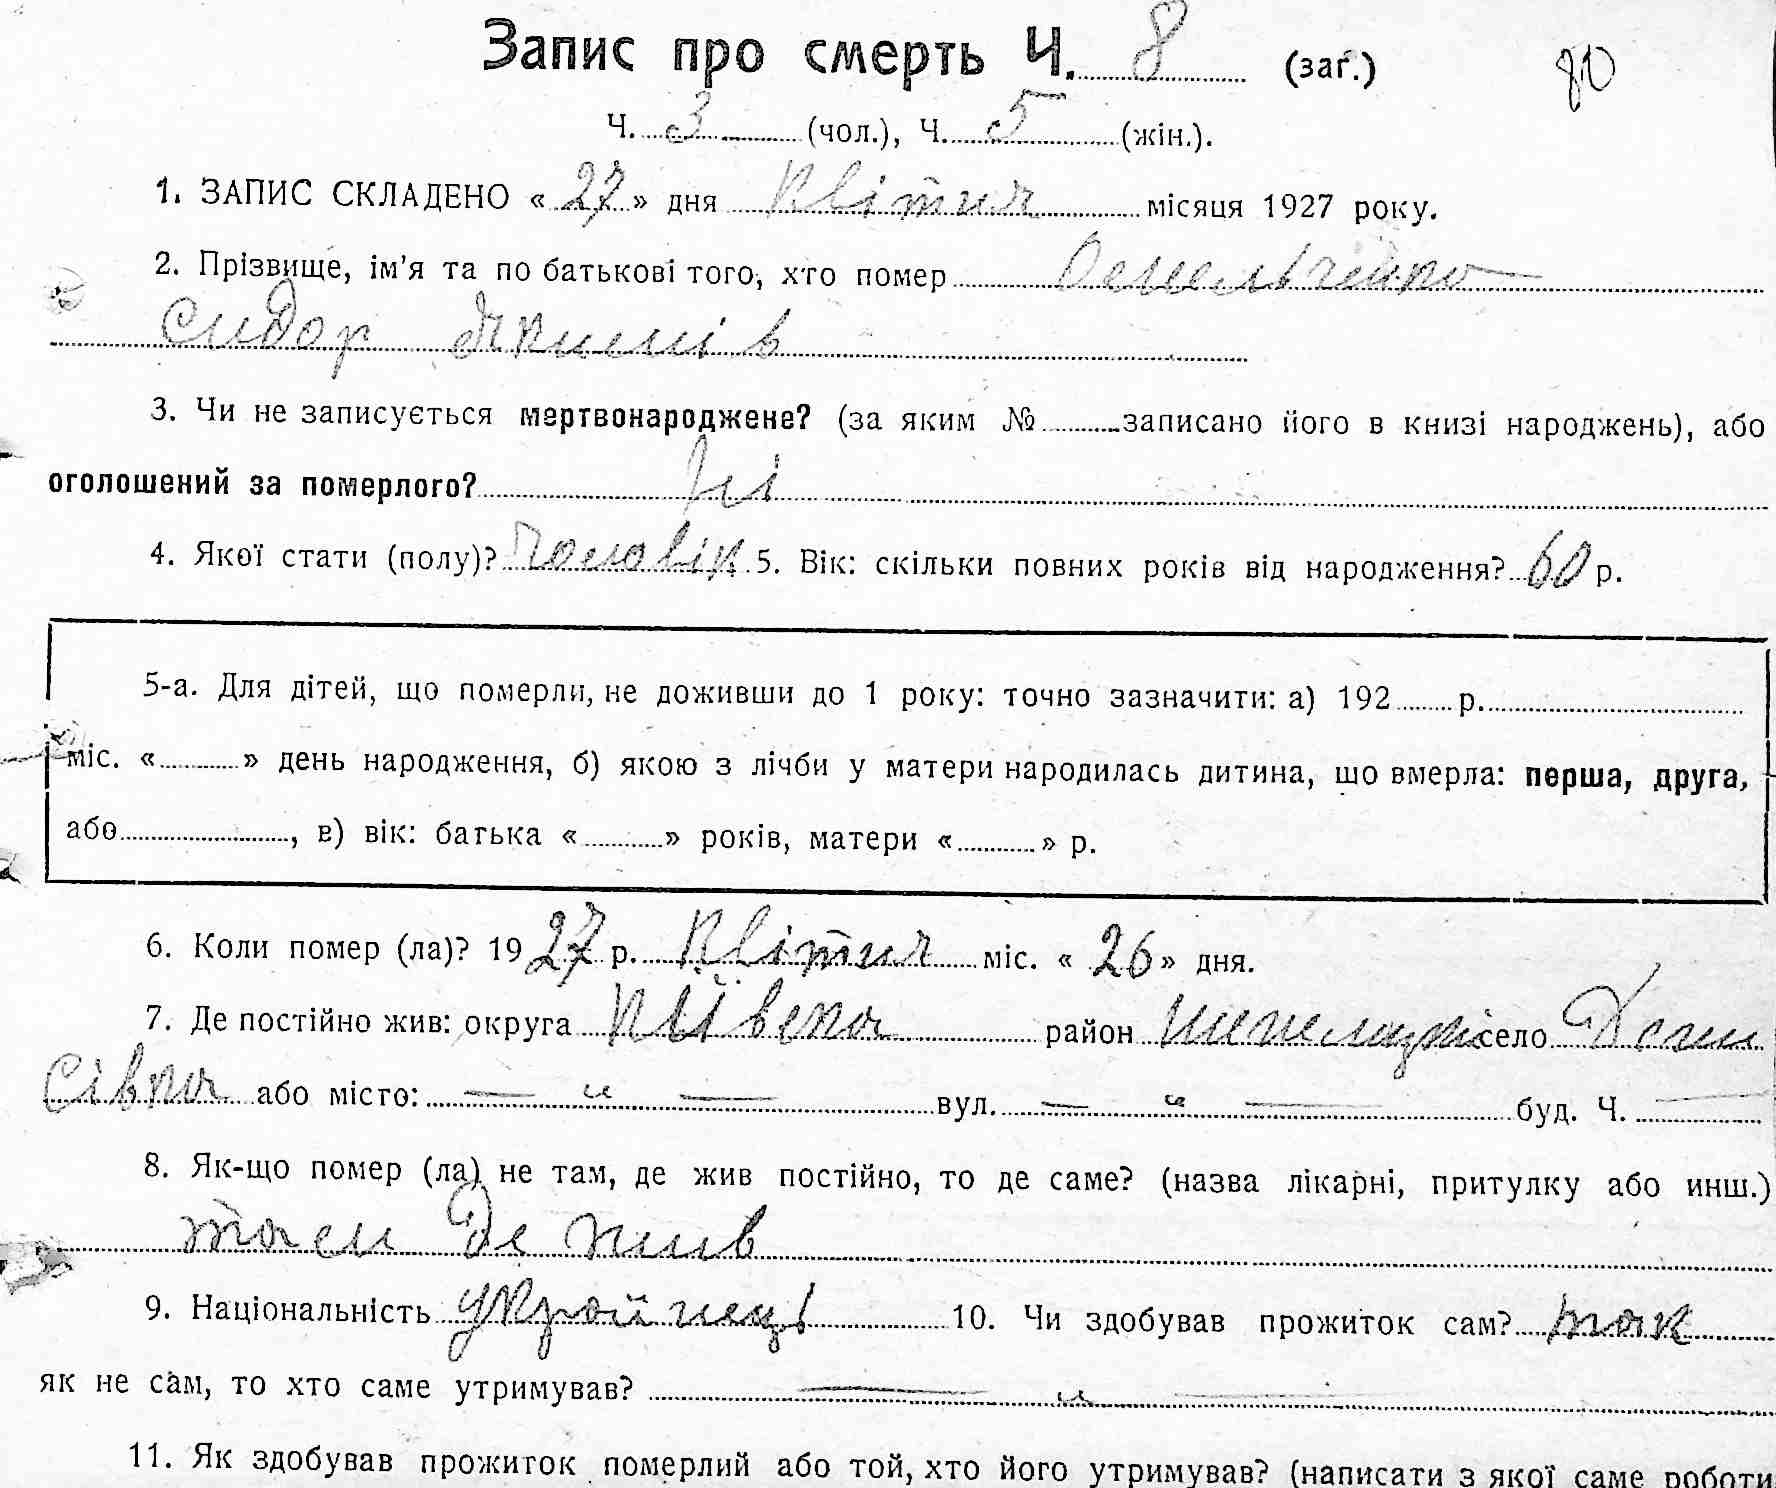 Запис про смерть Ч. 8 (заг.) 80
Ч. 3 (чол.), Ч. 5 (жін.).
1. ЗАПИС СКЛАДЕНО « 27 » дня Квітня місяця 1927 року.
2. Прізвище, ім'я та по батькові того, хто помер Омельченко
Сидор Якимів
3. Чи не записується мертвонароджене? (за яким № записано його в книзі народжень), або
оголошений за померлого? Ні
4. Якої стати (полу)? чоловік 5. Вік: скільки повних років від народження? 60 р.
5-а. Для дітей, що померли, не доживши до 1 року: точно зазначити: а) 192 р.
міс. « » день народження, б) якою з лічби у матери народилась дитина, що вмерла: перша, друга,
або , в) вік: батька « » років, матери « » р.
6. Коли помер (ла)? 19 27 р. Квітня міс. « 26 » дня.
7. Де постійно жив: округа Київська район село
сівка або місто: — „ — вул. — „ — буд. Ч. —
8. Як-що помер (ла) не там, де жив постійно, то де саме? (назва лікарні, притулку або инш.)
там де жив
9. Національність українець 10. Чи здобував прожиток сам? так
як не сам, то хто саме утримував? — „ —
11. Як здобував прожиток померлий або той, хто його утримував? (написати з якої саме роботи